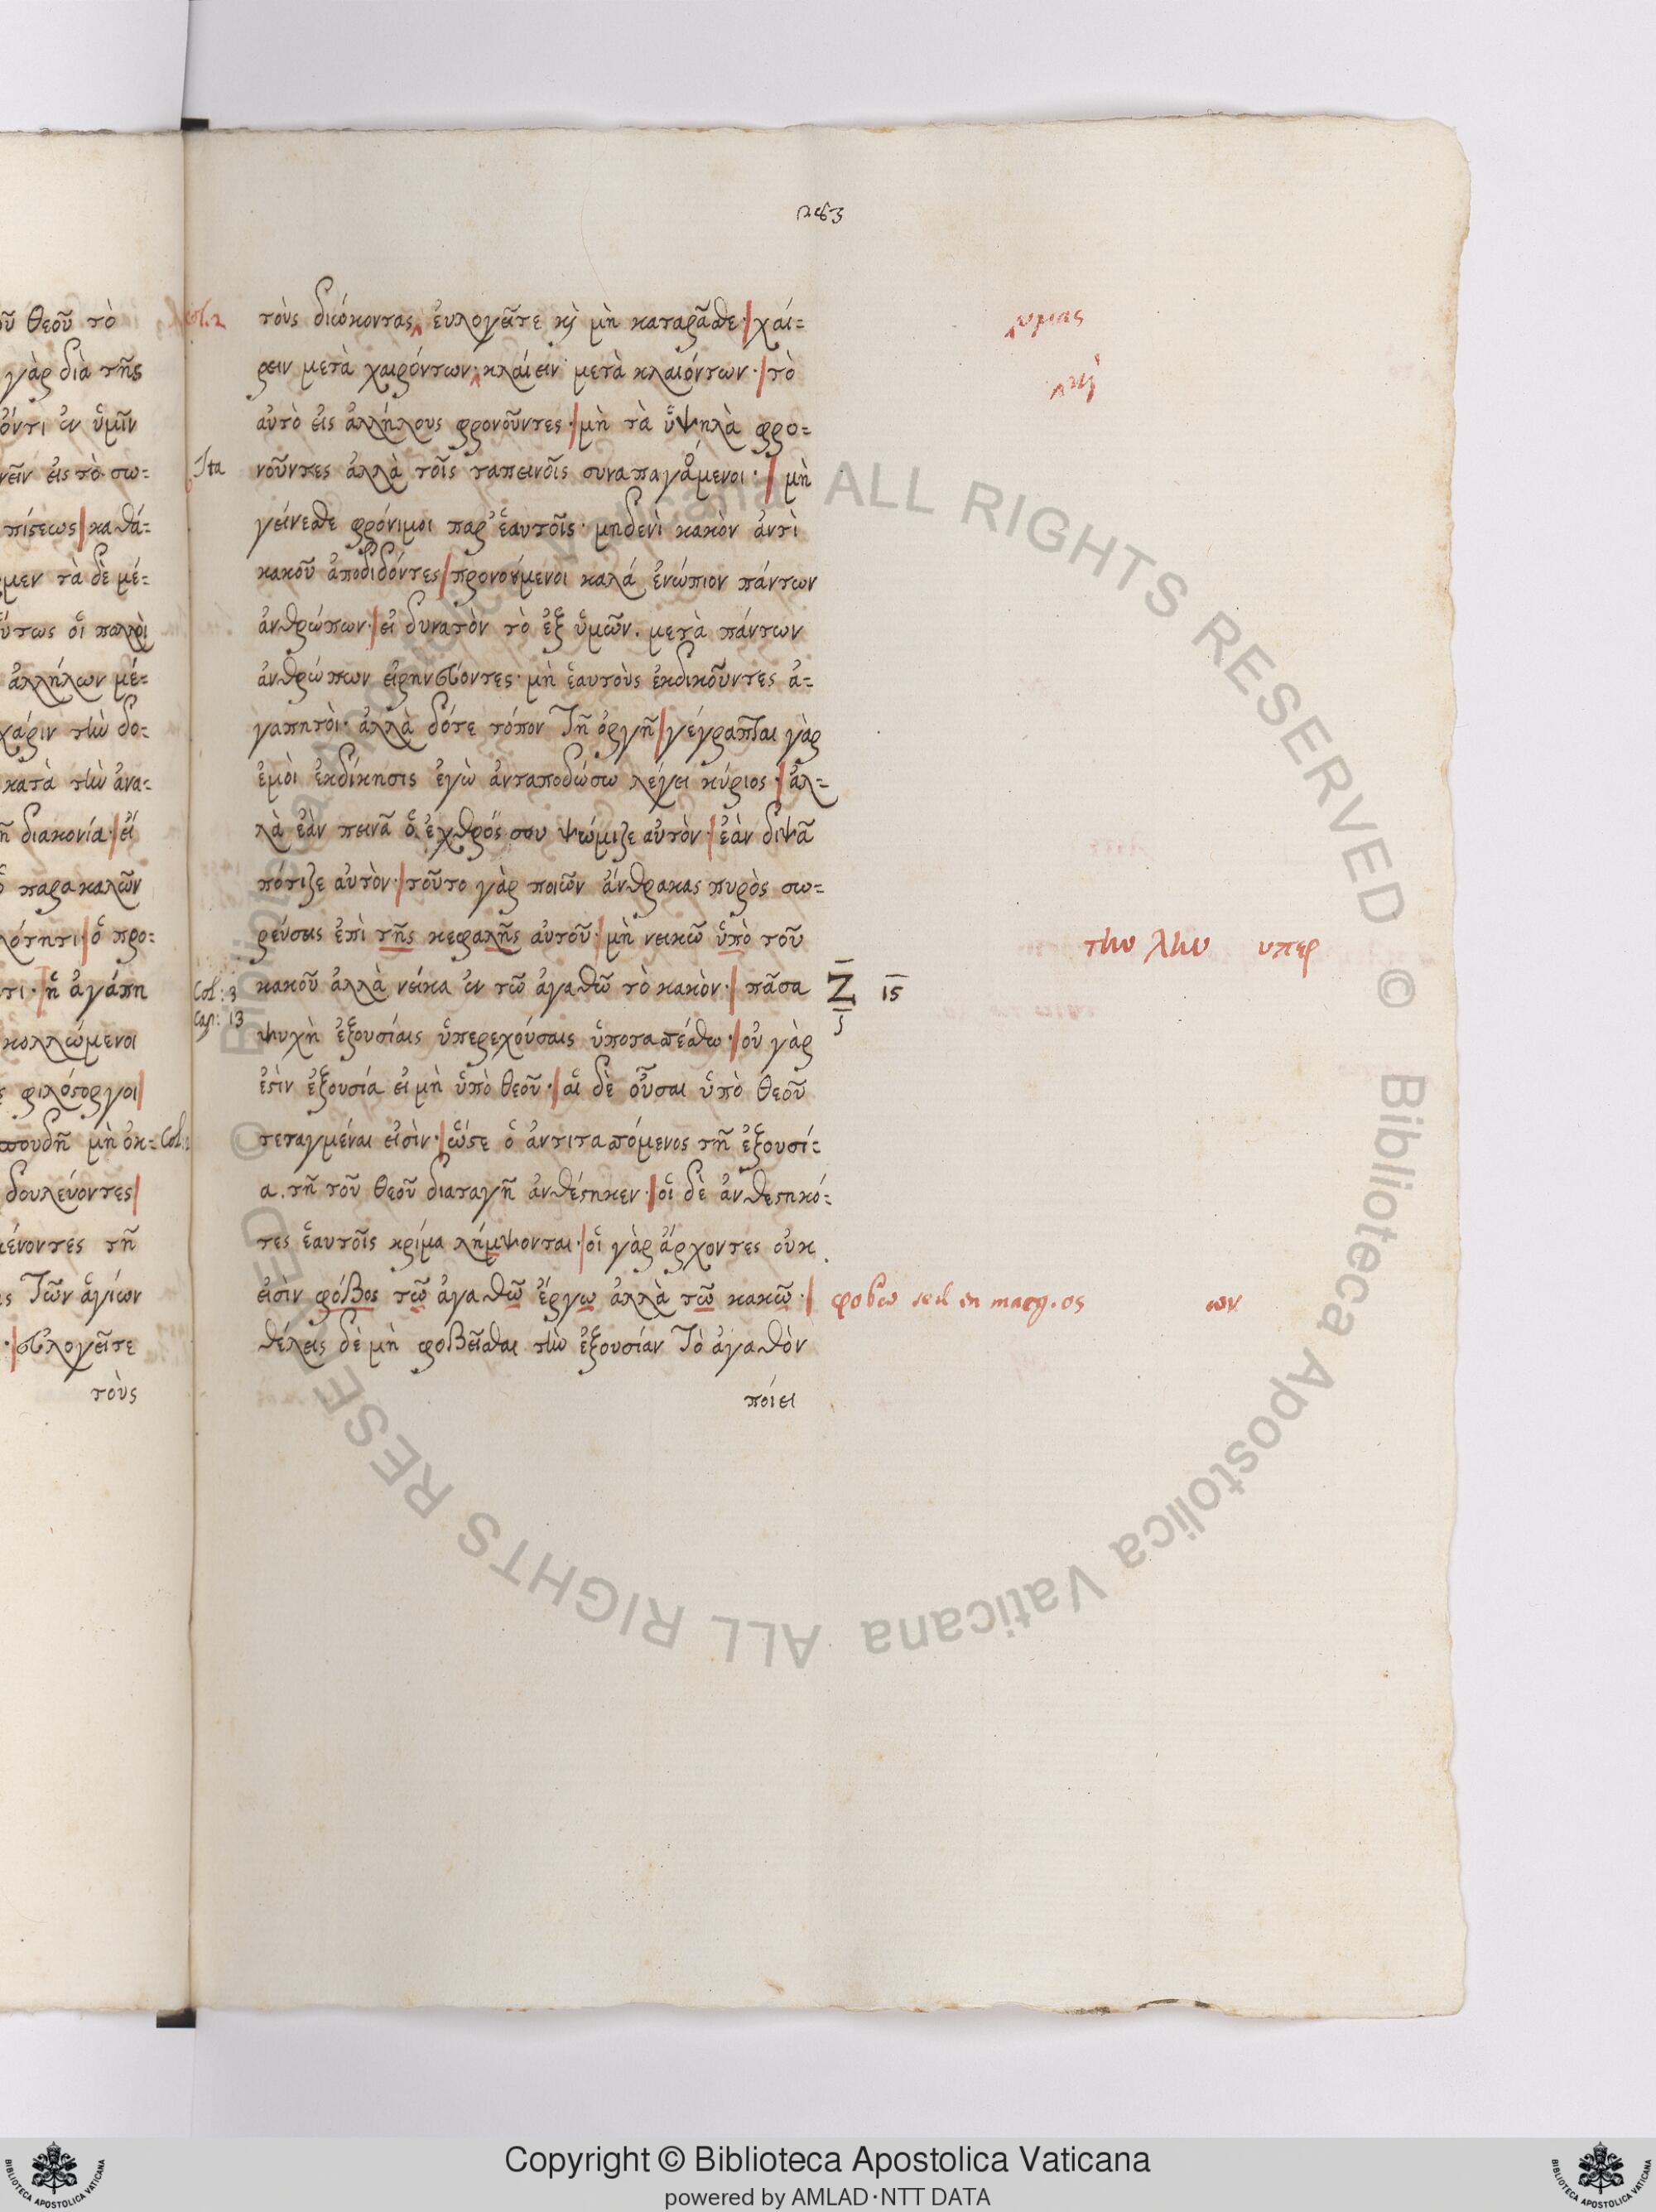 τοὺς διώκοντας ἐυλογεῖτε κὶ μὴ καταρᾶσθε· χαί=
ρειν μετὰ χαιρόντων· κλαίειν μετὰ κλαιόντων· τὸ
αὐτὸ εἰς ἀλλήλους φρονοῦντες· μὴ τὰ ὑψηλὰ φρο=
νοῦντες ἀλλὰ τοῖς ταπεινοῖς συναπαγόμενοι· μὴ
γείνεσθε φρόνιμοι παρ' ἑαυτοῖς· μηδενὶ κακὸν ἀντὶ
κακοῦ ἀποδιδόντες προνούμενοι καλά ἐνώπιον πάντων
ἀνθρώπων· εἰ δυνατὸν τὸ ἐξ ὑμῶν. μετὰ πάντων
ἀνθρώπων εἰρηνεύοντες· μὴ ἑαυτοὺς ἐκδικοῦντες ἀ=
γαπητὸι· ἀλλὰ δότε τόπον τῆ ὀργῆ γέγραπται γὰρ
ἐμὸι ἐκδίκησις ἐγὼ ἀνταποδώσω λέγει κύριος· ἀλ=
λὰ ἐὰν πεινᾶ ὁ ἐχθρός σου ψώμιζε αὐτὸν· ἐὰν διψᾶ
πότιζε αὐτὸν· τοῦτο γὰρ ποιῶν ἀνθρακας πυρὸς σω=
ρεύσεις ἐπὶ τῆς κεφαλῆς αὐτοῦ· μὴ νεικῶ ὑπὸ τοῦ
κακοῦ ἀλλὰ νείκα ἐν τῶ ἀγαθῶ τὸ κακὸν· πᾶσα
ψυχὴ ἐξουσίαις ὑπερεχούσαις ὑποτασσέσθω· οὐ γὰρ
ἐστὶν ἐξουσία εἰ μὴ ὑπὸ θεοῦ· αἱ δὲ οὖσαι ὑπὸ θεοῦ
τεταγμέναι εἰσὶν· ὥστε ὁ ἀντιτασσόμενος τῆ ἐξουσί=
α. τῆ τοῦ θεοῦ διαταγῆ ἀνθέστηκεν· οἱ δὲ ἀνθεστηκό=
τες ἑαυτοῖς κρίμα λήμψονται· οἱ γὰρ ἄρχοντες οὐκ
εἰσὶν φόβος τῶ ἀγαθῶ ἔργω ἀλλὰ τῶ κακῶ·
θέλεις δὲ μὴ φοβεῖσθαι τὴν ἐξουσίαν τὸ ἀγαθὸν
ποίει
υμας
κὶ
Ita
την λην υπερ
Z 15
Col: 3
Cap: 13
φοβω sed in marg. ος ων
οῦ θεοῦ τὸ
γὰρ διὰ τῆς
όντι ἐν ὑμῖν
νεῖν εἰς τὸ σω=
πίστεως καθά=
μεν τὰ δὲ μέ=
ύτως οἱ πολλοὶ
ἀλλήλων μέ=
χάριν τὴν δο=
κατὰ τὴν ἀνα=
ῆ διακονία· εἴ
παρακαλῶν
λότητι· ὁ προ=
τι· ἡ ἀγάπη
κολλώμενοι
φιλόστοργοι
σπουδῆ μὴ ὀκ=
Col:
δουλεύοντες
μένοντες τῆ
ς τῶν ἁγίων
· εὐλογεῖτε
τοὺς
© Biblioteca Apostolica Vaticana ALL RIGHTS RESERVED © Biblioteca Apostolica Vaticana ALL RIGHTS RESERVED
Copyright © Biblioteca Apostolica Vaticana
powered by AMLAD·NTT DATA
BIBLIOTECA APOSTOLICA VATICANA
BIBLIOTECA APOSTOLICA VATICANA